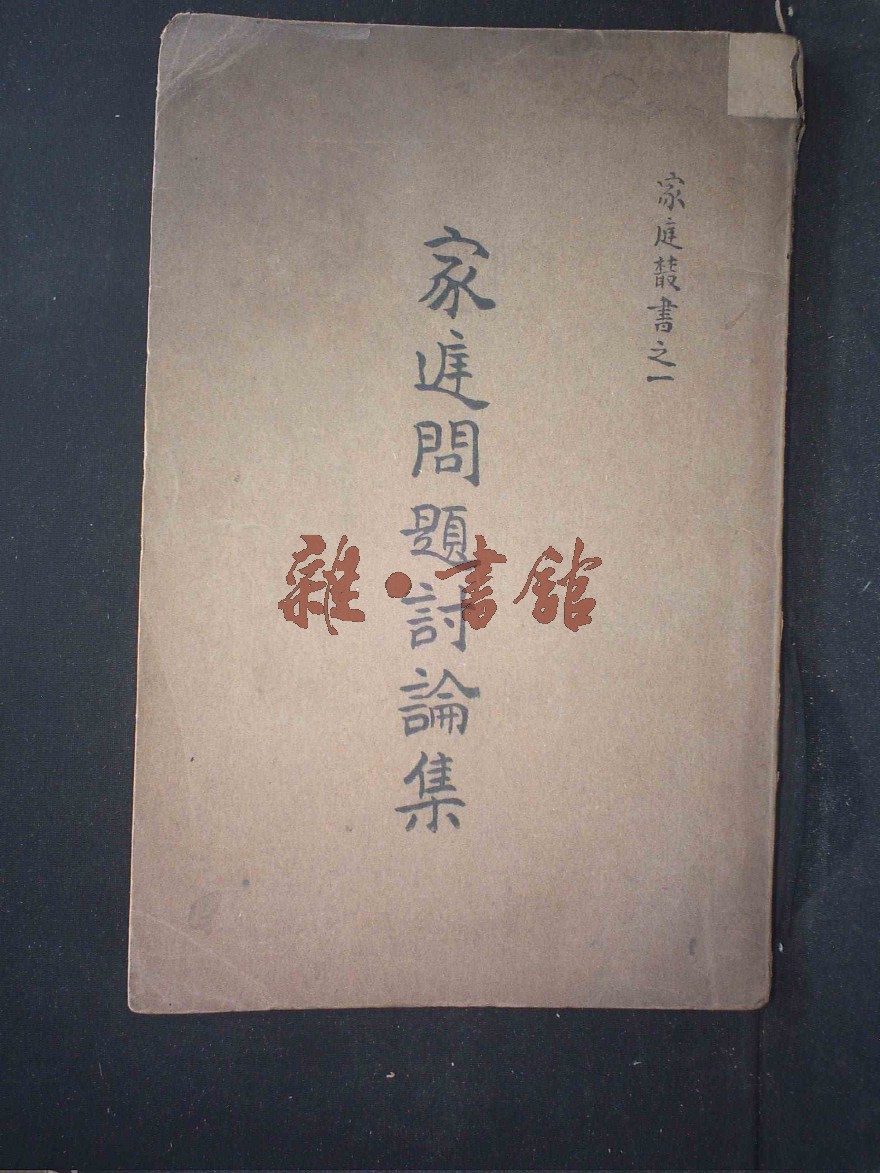 家庭叢書之一
家庭問題討論集
雜·書館